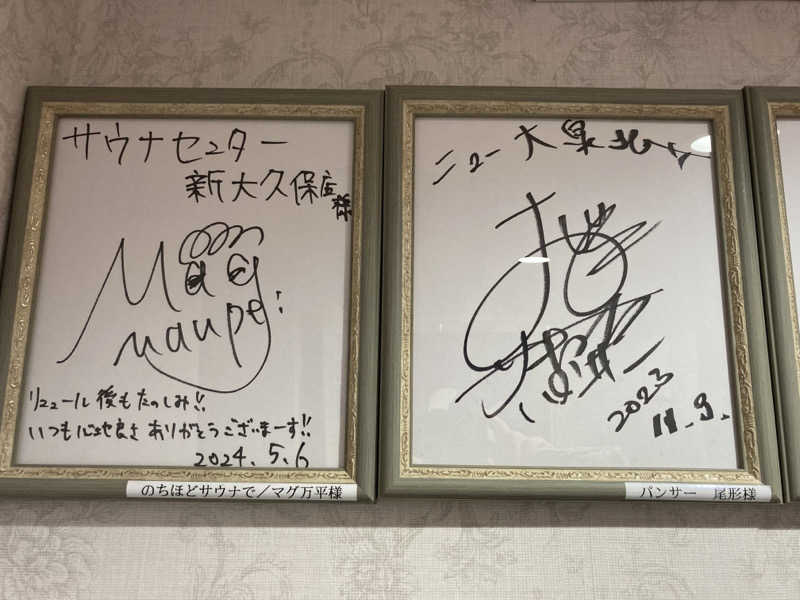 サウナセンター
新大久保店様
Mag
manpei!
リニューアル後もたのしみ!!
いつも心地良さありがとうございまーす!!
2024.5.6
のちほどサウナで／マグ万平様
ニュー大泉
2023
11.9.
パンサー　尾形様